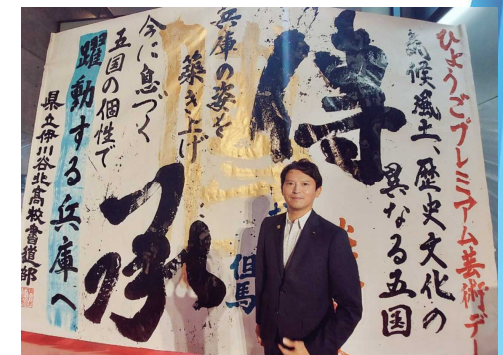 ひょうごプレミアム芸術デー
気候風土、歴史文化の
異なる五国
兵庫の姿を
築き上げ
今に息づく
五国の個性で
躍動する兵庫へ
県立伊川谷北高校書道部
但馬